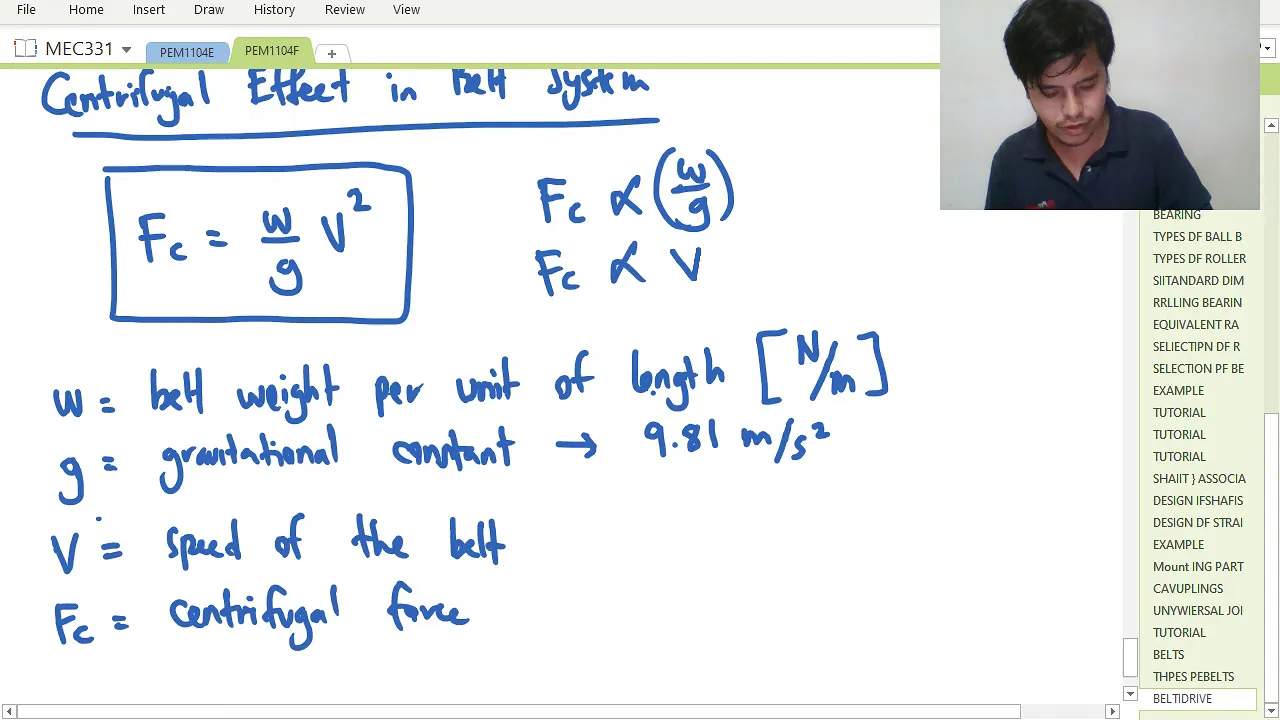 File Home Insert Draw History Review View
MEC331 PEM1104E PEM1104F
Centrifugal Effect in Belt System
Fc = w/g V²
Fc ∝ (w/g)
Fc ∝ V
w = belt weight per unit of length [N/m]
g = gravitational constant → 9.81 m/s²
V = speed of the belt
Fc = centrifugal force
BEARING
TYPES DF BALL B
TYPES DF ROLLER
SIITANDARD DIM
RRLLING BEARIN
EQUIVALENT RA
SELIECTIPN DF R
SELECTION PF BE
EXAMPLE
TUTORIAL
TUTORIAL
TUTORIAL
SHAIIT } ASSOCIA
DESIGN IFSHAFIS
DESIGN DF STRAI
EXAMPLE
Mount ING PART
CAVUPLINGS
UNYWIERSAL JOI
TUTORIAL
BELTS
THPES PEBELTS
BELTIDRIVE